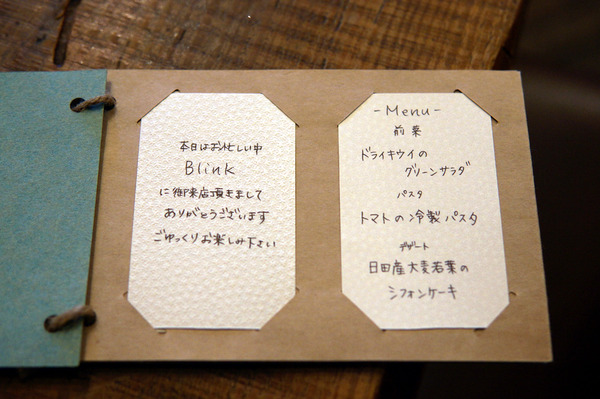 本日はお忙しい中
Blink
に御来店頂きまして
ありがとうございます
ごゆっくりお楽しみ下さい
-Menu-
前菜
ドライキウイの
グリーンサラダ
パスタ
トマトの冷製パスタ
デザート
日田産大麦若葉の
シフォンケーキ